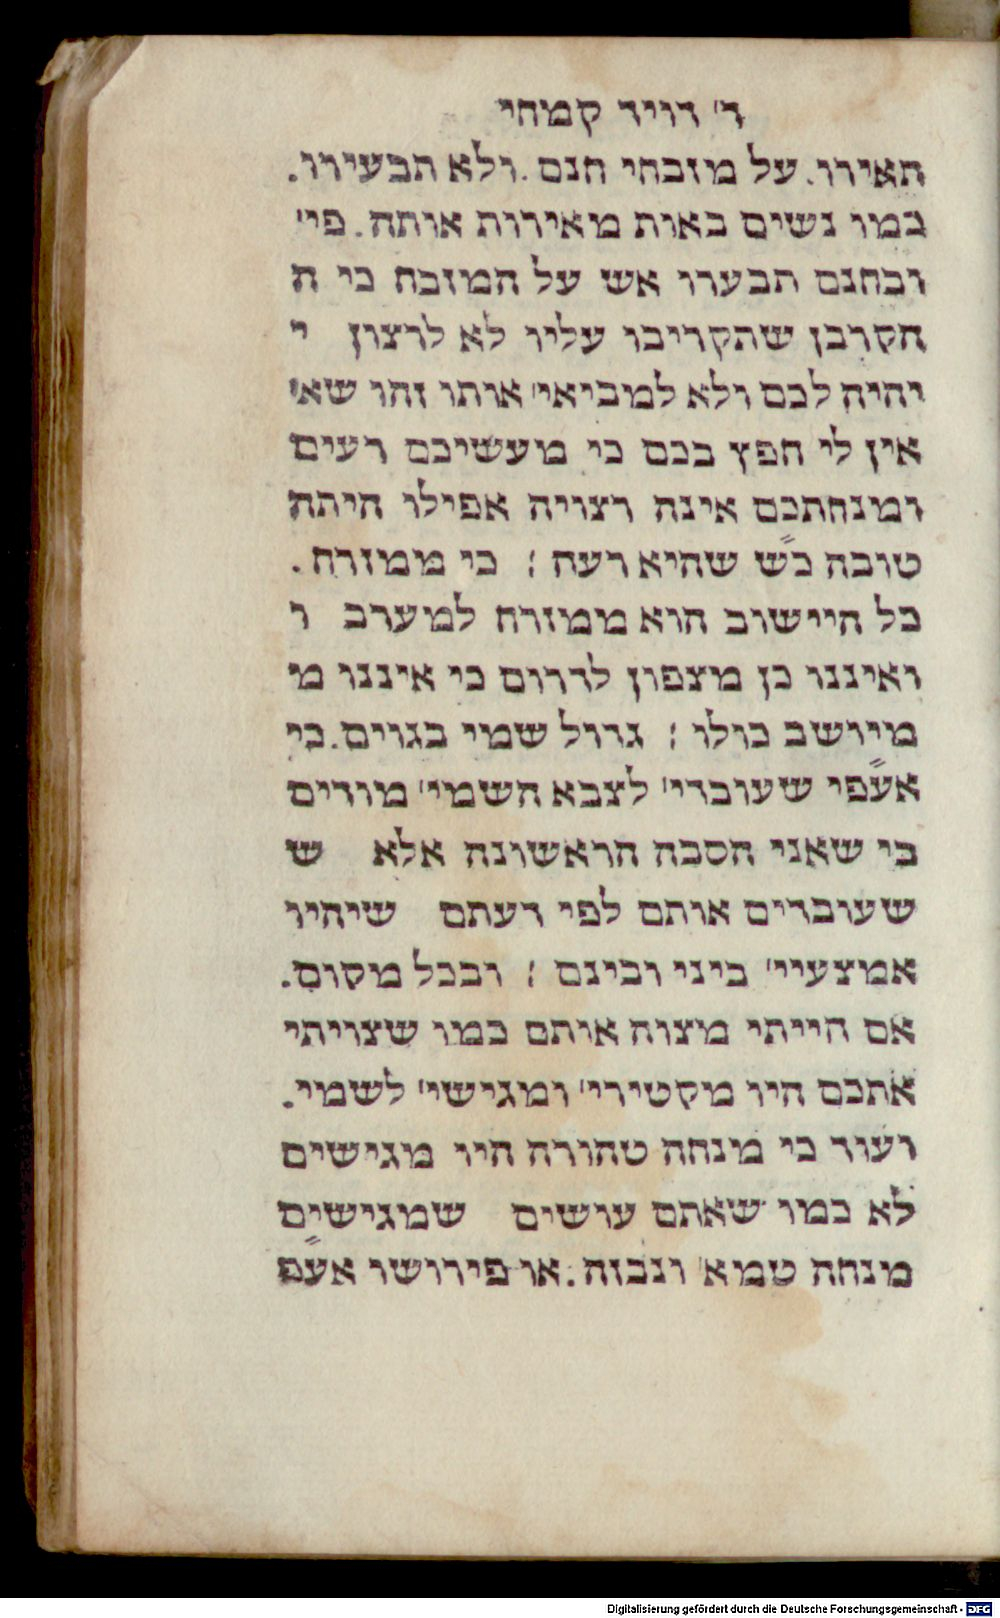 ר' דויד קמחי
תאירו. על מזבחי חנם. ולא תבעירו.
כמו נשים באות מאירות אותה. פי'
ובחנם תבערו אש על המזבח כי ה
הקרבן שתקריבו עליו לא לרצון י
יהיה לכם ולא למביאי' אותו זהו שא'
אין לי חפץ בכם כי מעשיכם רעים
ומנחתכם אינה רצויה אפילו היתה
טובה כ״ש שהיא רעה : כי ממזרח.
כל היישוב הוא ממזרח למערב ו
ואיננו כן מצפון לדרום כי איננו מ
מיושב כולו : גדול שמי בגוים. כי
אע״פי שעובדי' לצבא השמי' מודים
כי שאני הסבה הראשונה אלא ש
שעובדים אותם לפי דעתם שיהיו
אמצעיי' ביני ובינם : ובכל מקום.
אם הייתי מצוה אותם כמו שצויתי
אתכם היו מקטירי' ומגישי' לשמי.
ועוד כי מנחה טהורה היו מגישים
לא כמו שאתם עושים שמגישים
מנחה טמא' ונבזה. או פירושו אע״פ
Digitalisierung gefördert durch die Deutsche Forschungsgemeinschaft - DFG